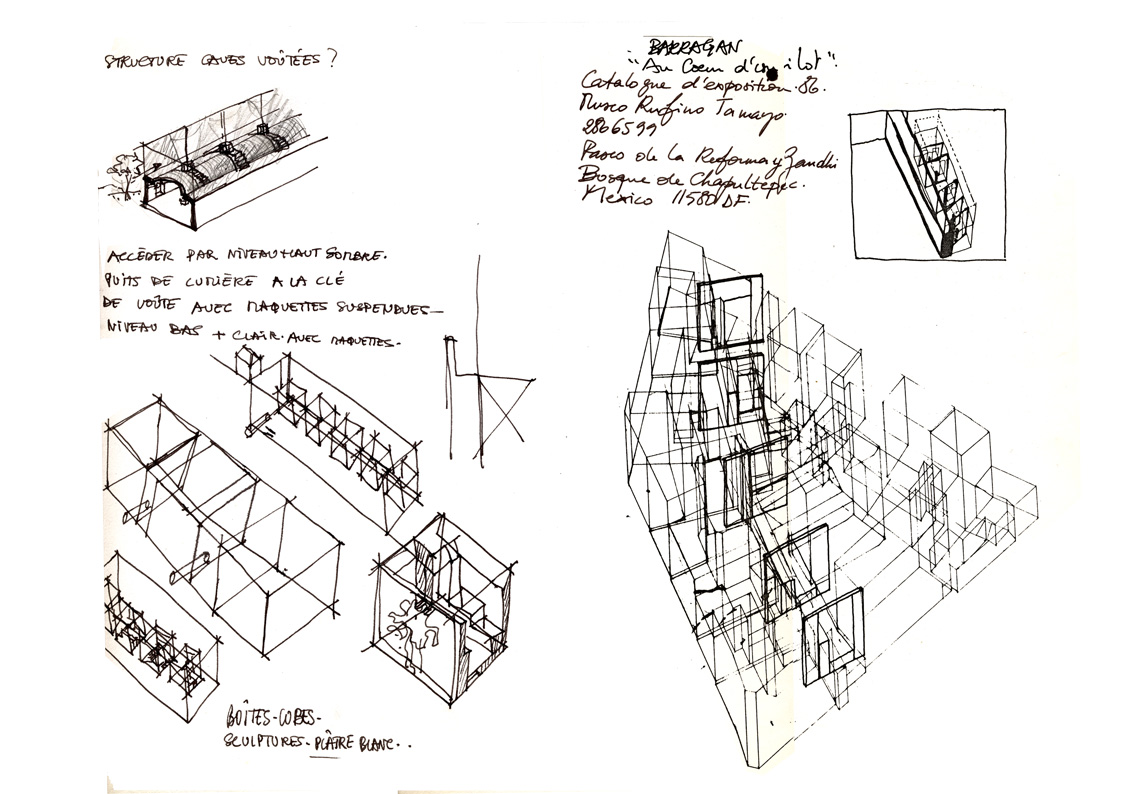 STRUCTURE CAVES VOÛTÉES ?
ACCÈDER PAR NIVEAU + HAUT SOMBRE.
PUITS DE LUMIÈRE A LA CLÉ
DE VOÛTE AVEC MAQUETTES SUSPENDUES —
NIVEAU BAS + CLAIR. AVEC MAQUETTES -
BOÎTES - CUBES -
SCULPTURES - PLÂTRE BLANC . .
BARRAGAN
"Au Coeur d'un ilot".
Catalogue d'exposition. 86.
Museo Rufino Tamayo
2866599
Paseo de la Reforma y Gandhi
Bosque de Chapultepec.
México 11580 DF.